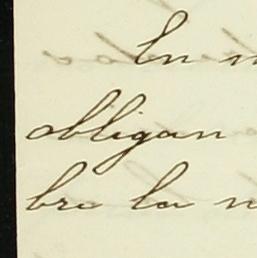 En
obligan
bre la